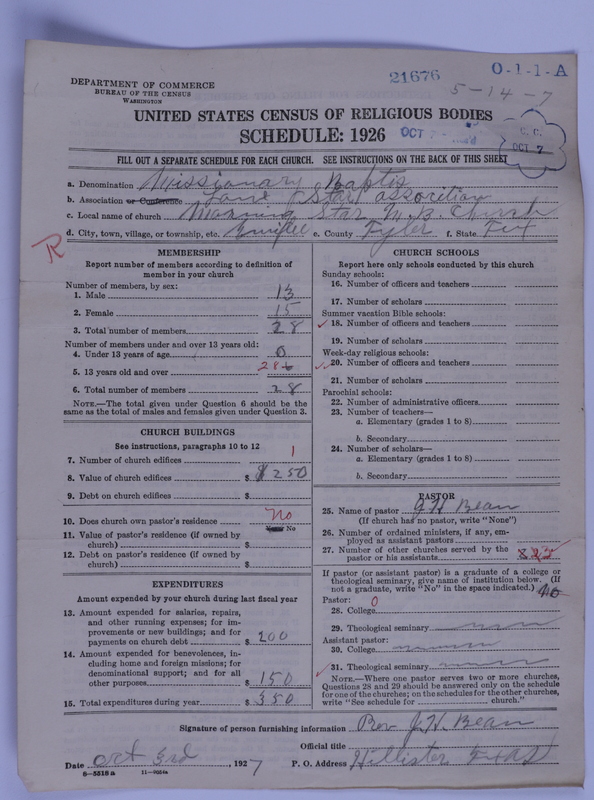 21676 O-1-1-A
5-14-7
DEPARTMENT OF COMMERCE
BUREAU OF THE CENSUS
WASHINGTON
UNITED STATES CENSUS OF RELIGIOUS BODIES
SCHEDULE: 1926
OCT
C. C.
OCT 7
FILL OUT A SEPARATE SCHEDULE FOR EACH CHURCH. SEE INSTRUCTIONS ON THE BACK OF THIS SHEET
a. Denomination Missionary Baptis
b. Association or Conference Land Star assocition
c. Local name of church Morning Star M. B. Church
d. City, town, village, or township, etc. e. County Tyler f. State Tex
R
MEMBERSHIP
Report number of members according to definition of
member in your church
Number of members, by sex:
1. Male 13
2. Female 15
3. Total number of members 28
Number of members under and over 13 years old:
4. Under 13 years of age 0
5. 13 years old and over 28
6. Total number of members 28
NOTE.—The total given under Question 6 should be the
same as the total of males and females given under Question 3.
CHURCH BUILDINGS
See instructions, paragraphs 10 to 12
7. Number of church edifices 1
8. Value of church edifices $ $250
9. Debt on church edifices $
10. Does church own pastor's residence No
Yes or No
11. Value of pastor's residence (if owned by
church) $
12. Debt on pastor's residence (if owned by
church) $
EXPENDITURES
Amount expended by your church during last fiscal year
13. Amount expended for salaries, repairs,
and other running expenses; for im-
provements or new buildings; and for
payments on church debt $ 200
14. Amount expended for benevolences, in-
cluding home and foreign missions; for
denominational support; and for all
other purposes $ 150
15. Total expenditures during year $ 350
CHURCH SCHOOLS
Report here only schools conducted by this church
Sunday schools:
16. Number of officers and teachers
17. Number of scholars
Summer vacation Bible schools:
18. Number of officers and teachers
19. Number of scholars
Week-day religious schools:
20. Number of officers and teachers
21. Number of scholars
Parochial schools:
22. Number of administrative officers
23. Number of teachers—
a. Elementary (grades 1 to 8)
b. Secondary
24. Number of scholars—
a. Elementary (grades 1 to 8)
b. Secondary
PASTOR
25. Name of pastor J H Bean
(If church has no pastor, write "None")
26. Number of ordained ministers, if any, em-
ployed as assistant pastors
27. Number of other churches served by the
pastor or his assistants
If pastor (or assistant pastor) is a graduate of a college or
theological seminary, give name of institution below. (If
not a graduate, write "No" in the space indicated.) No
Pastor: 0
28. College
29. Theological seminary
Assistant pastor:
30. College
31. Theological seminary
NOTE.—Where one pastor serves two or more churches,
Questions 28 and 29 should be answered only on the schedule
for one of the churches; on the schedules for the other churches,
write "See schedule for church."
Signature of person furnishing information Rev J. H. Bean
Official title
Date Oct 3rd, 1927 P. O. Address Hillister Texas
8—5518a 11—9024a